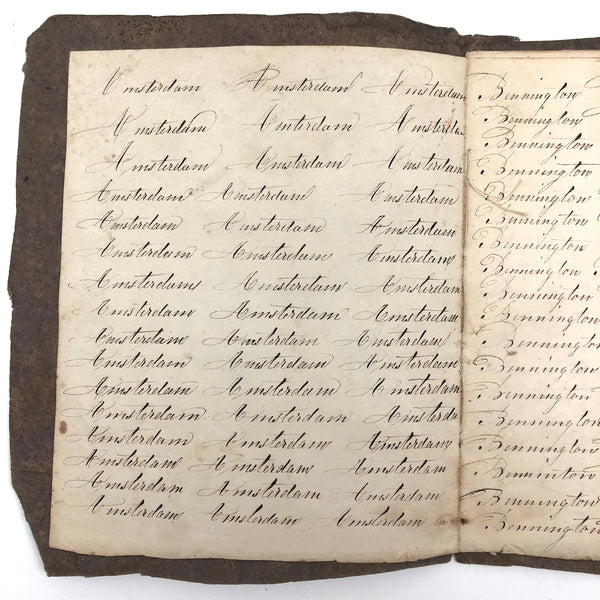 Amsterdam Amsterdam Amsterdam
Amsterdam Amterdam Amsterda
Amsterdam Amsterdam Amsterdam
Amsterdam Amsterdam Amsterdam
Amsterdam Amsterdam Amsterdam
Amsterdam Amsterdam Amsterdam
Amsterdams Amsterdam Amsterdam
Amsterdam Amsterdam Amsterdam
Amsterdam Amsterdam Amsterdam
Amsterdam Amsterdam Amsterdam
Amsterdam Amsterdam Amsterdam
Amsterdam Amsterdam Amsterda
Amsterdam Amsterdam Amsterdam
Amsterdam Amsterdam Amsterdam
Amsterdam Amsterdam Amsterdam
Amsterdam Amsterdam Amsterdam
Bennington
Bennington
Bennington
Bennington
Bennington
Bennington
Bennington
Bennington
Bennington
Bennington
Bennington
Bennington
Bennington
Bennington
Bennington
Benninton
Bennington
Bennington